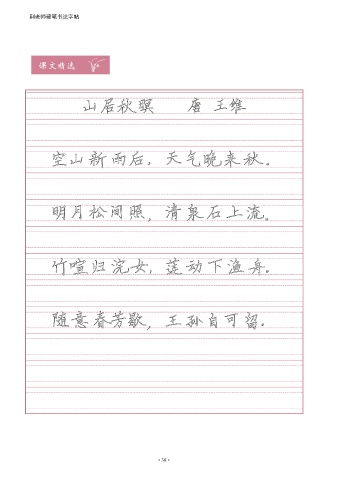 田老师硬笔书法字帖
课文精选
山居秋暝 唐 王维
空山新雨后，天气晚来秋。
明月松间照，清泉石上流。
竹喧归浣女，莲动下渔舟。
随意春芳歇，王孙自可留。